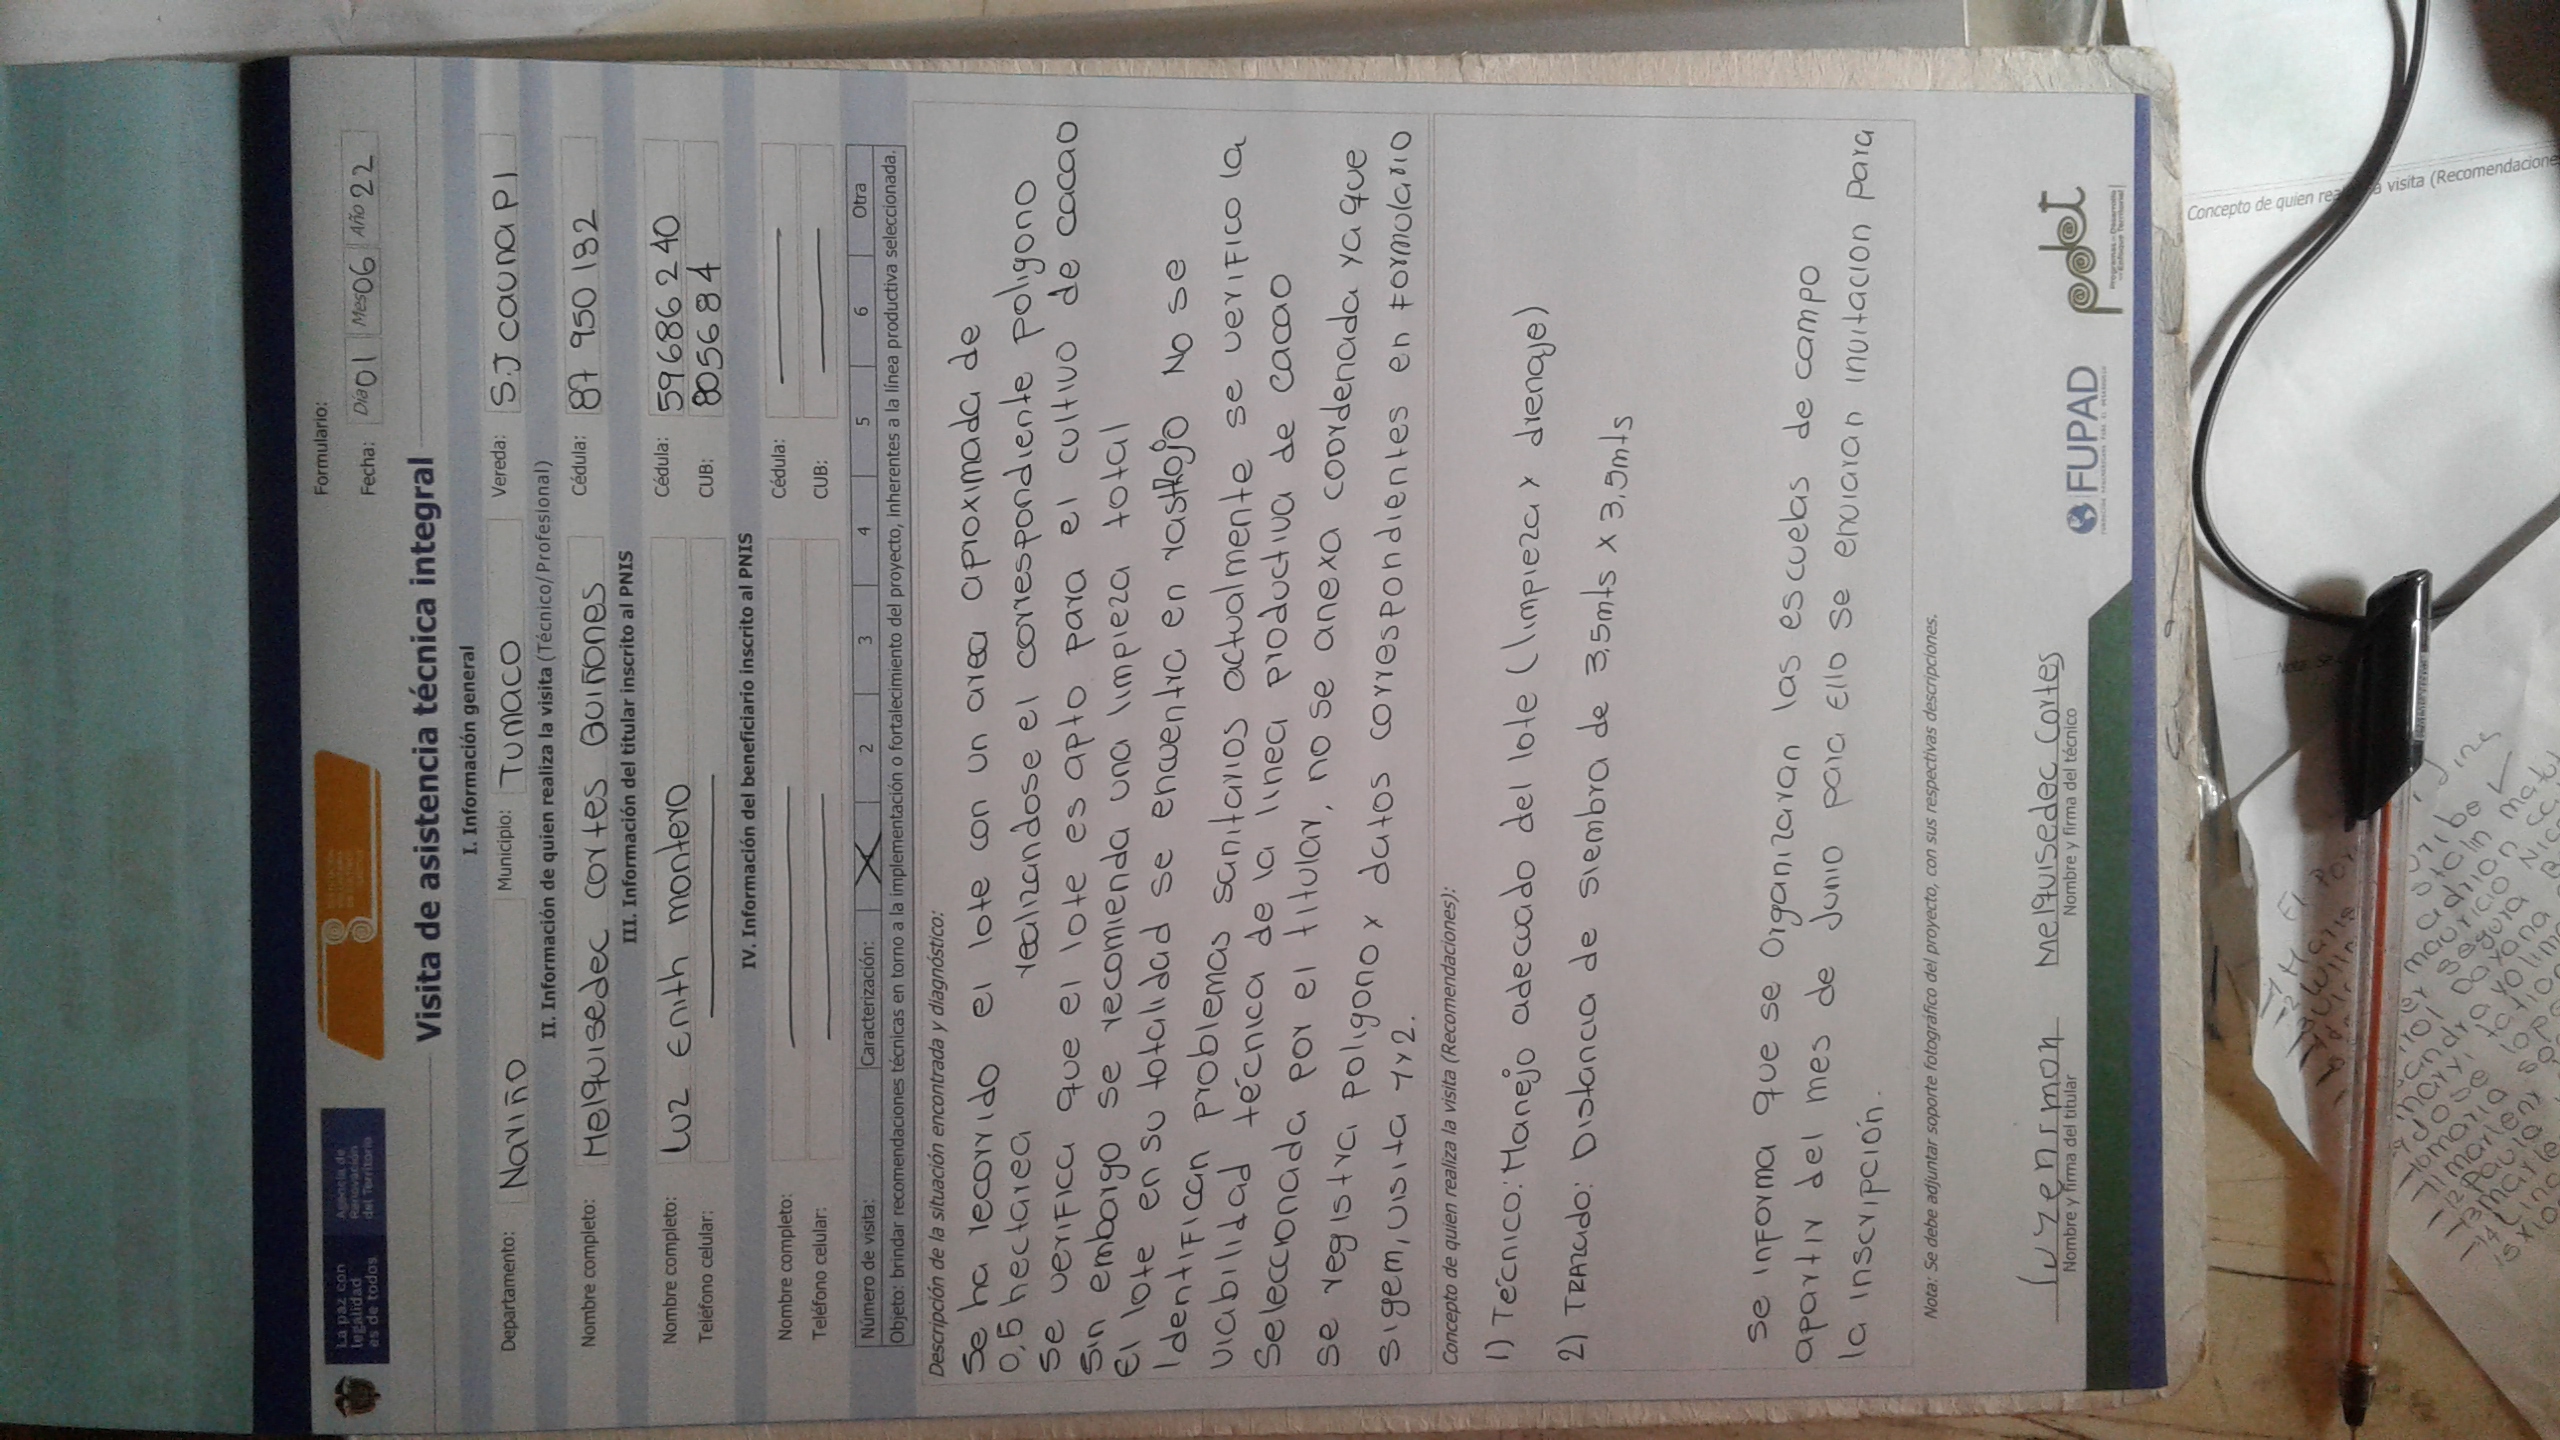 La paz con
legalidad
es de todos
Agencia de
Renovación
del Territorio
Formulario:
Fecha: Día 01 Mes 06 Año 22
Visita de asistencia técnica integral
I. Información general
Departamento: Nariño Municipio: Tumaco Vereda: S.J caunapi
II. Información de quien realiza la visita (Técnico/Profesional)
Nombre completo: Melquisedec cortes Quiñones Cédula: 87 950 132
III. Información del titular inscrito al PNIS
Nombre completo: Luz Enith montero Cédula: 59686240
Teléfono celular: CUB: 805684
IV. Información del beneficiario inscrito al PNIS
Nombre completo: Cédula:
Teléfono celular: CUB:
Número de visita: Caracterización: X 2 3 4 5 6 Otra
Objeto: brindar recomendaciones técnicas en torno a la implementación o fortalecimiento del proyecto, inherentes a la línea productiva seleccionada.
Descripción de la situación encontrada y diagnóstico:
Se ha recorrido el lote con un area aproximada de
0,5 hectarea realizandose el correspondiente poligono
se verifica que el lote es apto para el cultivo de cacao
Sin embargo se recomienda una limpieza total
El lote en su totalidad se encuentra en rastrojo No se
Identifican problemas sanitarios actualmente se verifico la
viabilidad técnica de la linea productiva de cacao
Seleccionada por el titular, no se anexa coordenada ya que
se registra poligono y datos correspondientes en formulario
sigem, visita 1 y 2.
Concepto de quien realiza la visita (Recomendaciones):
1) Técnico: Manejo adecuado del lote (limpieza y drenaje)
2) Trazado: Distancia de siembra de 3,5mts x 3,5mts
Se informa que se Organizaran las escuelas de campo
apartir del mes de Junio para Ello se enviaran invitacion para
la inscripción.
Nota: Se debe adjuntar soporte fotográfico del proyecto, con sus respectivas descripciones.
luz en r mon Melquisedec Cortes
Nombre y firma del titular Nombre y firma del técnico
FUPAD
pdet
Programas de Desarrollo
con Enfoque Territorial
Concepto de quien visita (Recomendacione